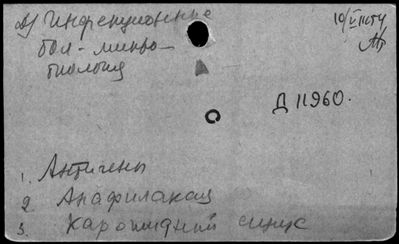 Инфекционные
бол-микро-
биология
Д 11960.
1. Антигены
2 Анафилаксия
3. Каротидный синус